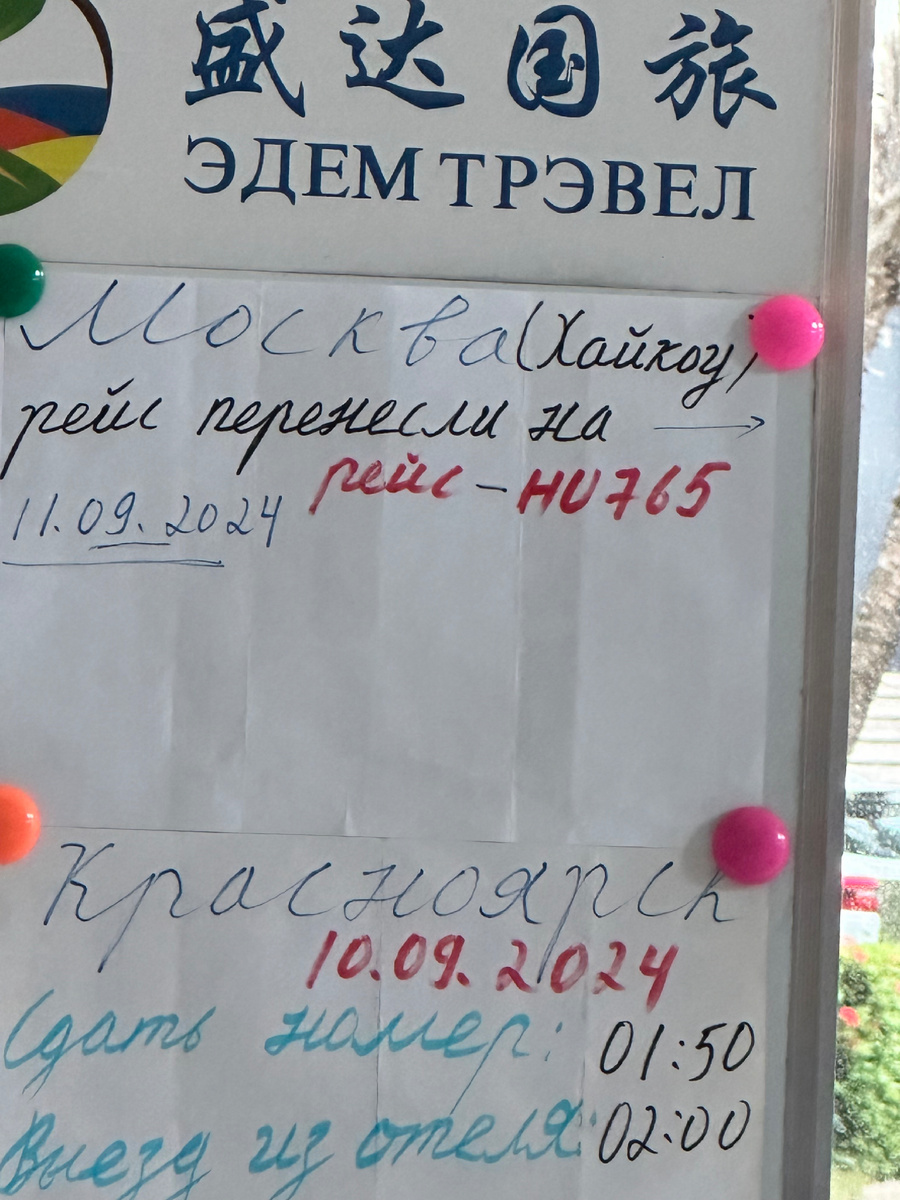 盛达国旅
ЭДЕМ ТРЭВЕЛ
Москва (Хайкоу)
рейс перенесли на →
рейс - HU765
11.09.2024
Красноярск
10.09.2024
Сдать номер: 01:50
Выезд из отеля: 02:00